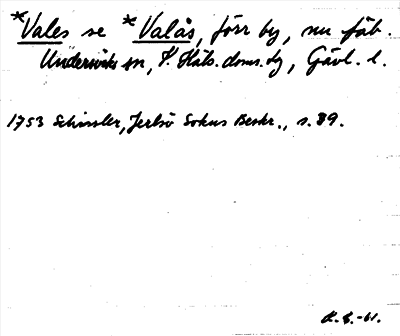 *Vales se *Valås, förr by, nu fäb.
Undersviks sn, V. Häls. doms. dg, Gävl. l.
1753 Schissler, Jerfsö Sokns Beskr., s. 89.
K.G.-61.